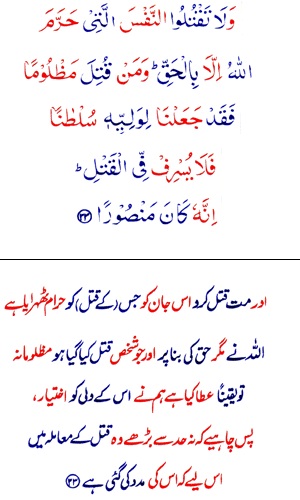 وَلَا تَقْتُلُوا النَّفْسَ الَّتِیْ حَرَّمَ
اللّٰهُ اِلَّا بِالْحَقِّ ؕ وَمَنْ قُتِلَ مَظْلُوْمًا
فَقَدْ جَعَلْنَا لِوَلِیِّهٖ سُلْطٰنًا
فَلَا یُسْرِفْ فِّی الْقَتْلِ ؕ
اِنَّهٗ كَانَ مَنْصُوْرًا ﴿۳۳﴾
اور مت قتل کرو اس جان کو جس (کے قتل) کو حرام ٹھہرایا ہے
اللہ نے مگر حق کی بنا پر اور جو شخص قتل کیا گیا ہو مظلومانہ
تو یقیناً عطا کیا ہے ہم نے اس کے ولی کو اختیار،
پس چاہیے کہ نہ حد سے بڑھے وہ قتل کے معاملہ میں
اس لیے کہ اس کی مدد کی گئی ہے ﴿۳۳﴾